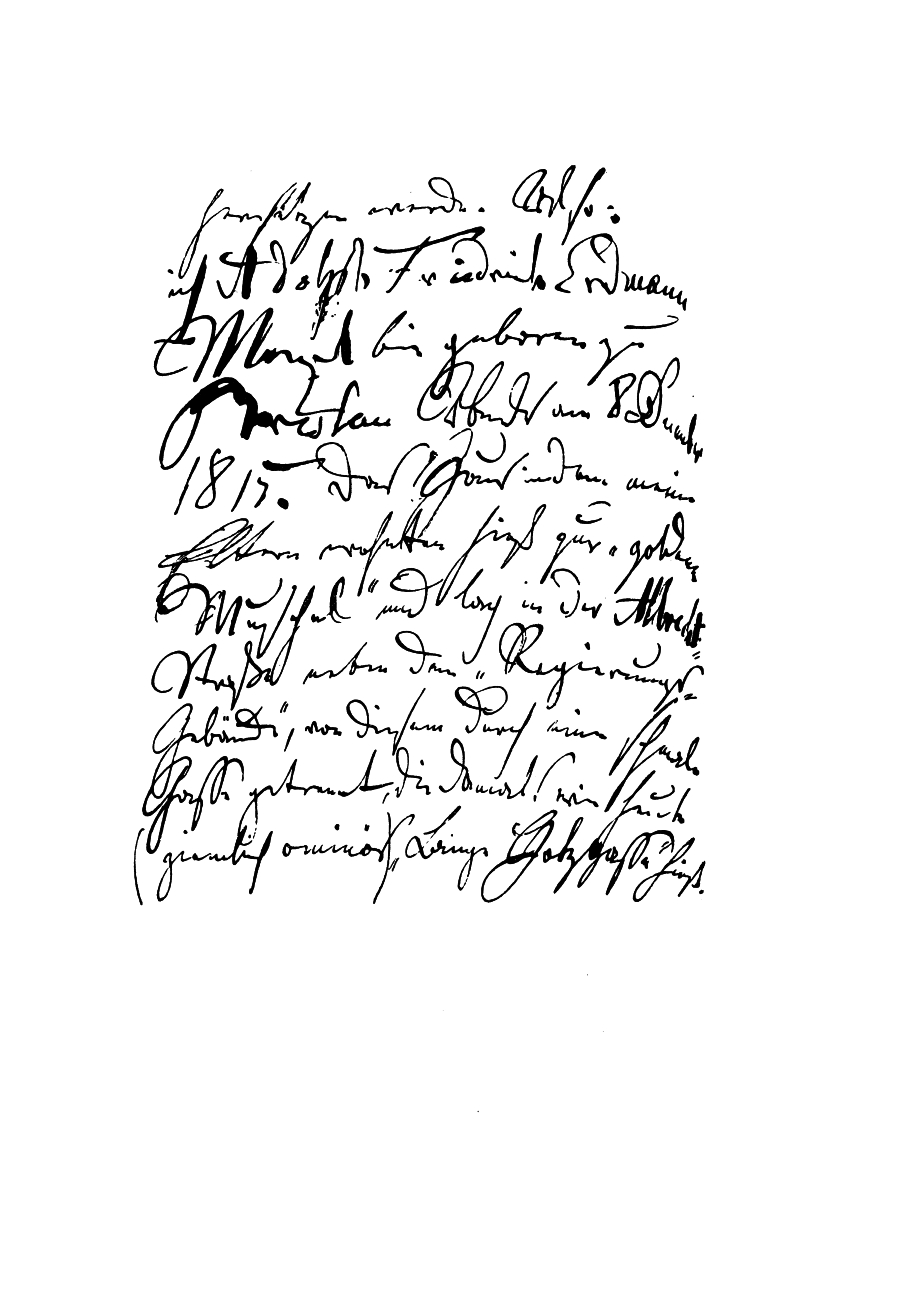 hersetzen werde. Also:
ich Adolph Friedrich Erdmann
Menzel bin geboren zu
Breslau Abends am 8 December
1815. Das Haus in dem meine
Eltern wohnten hieß zur „goldenen
Muschel" und lag in der Albrecht-
Straße neben dem „Regierungs-
Gebäude", von diesem durch eine schmale
Gasse getrennt, die damals wie heute
(ziemlich ominös) „ Gasse" hieß.